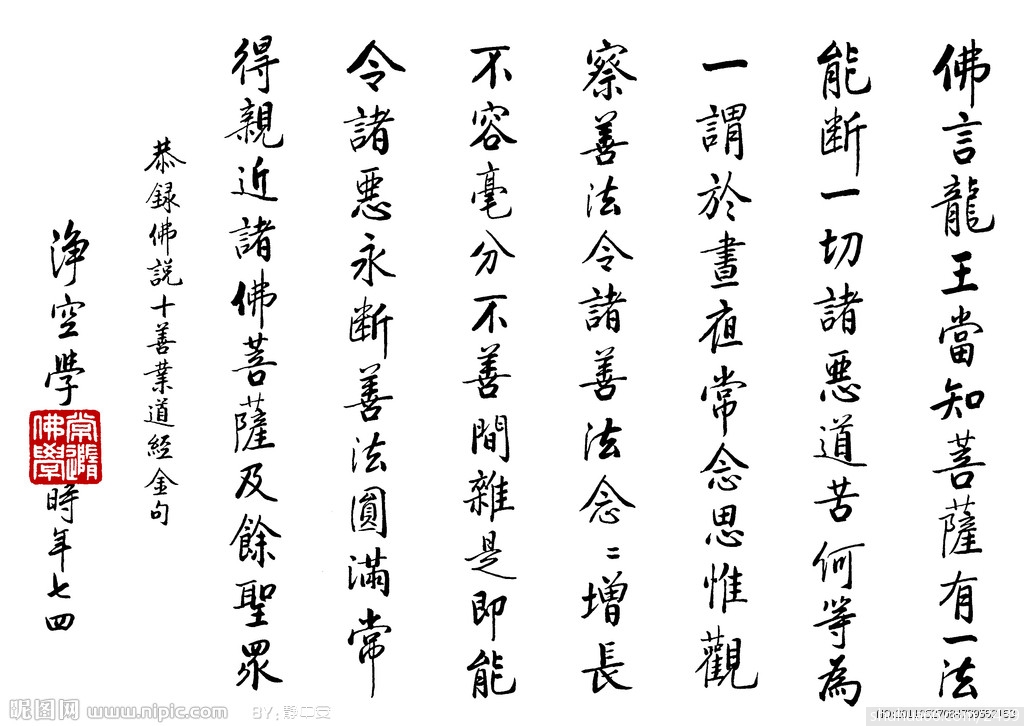 佛言龍王當知菩薩有一法
能断一切諸惡道苦何等為
一謂於晝夜常念思惟觀
察善法令諸善法念〻增長
不容毫分不善間雜是即能
令諸惡永断善法圓滿常
得親近諸佛菩薩及餘聖眾
恭録佛説十善業道經金句
淨空學
常隨佛學
時年七四
昵图网 www.nipic.com